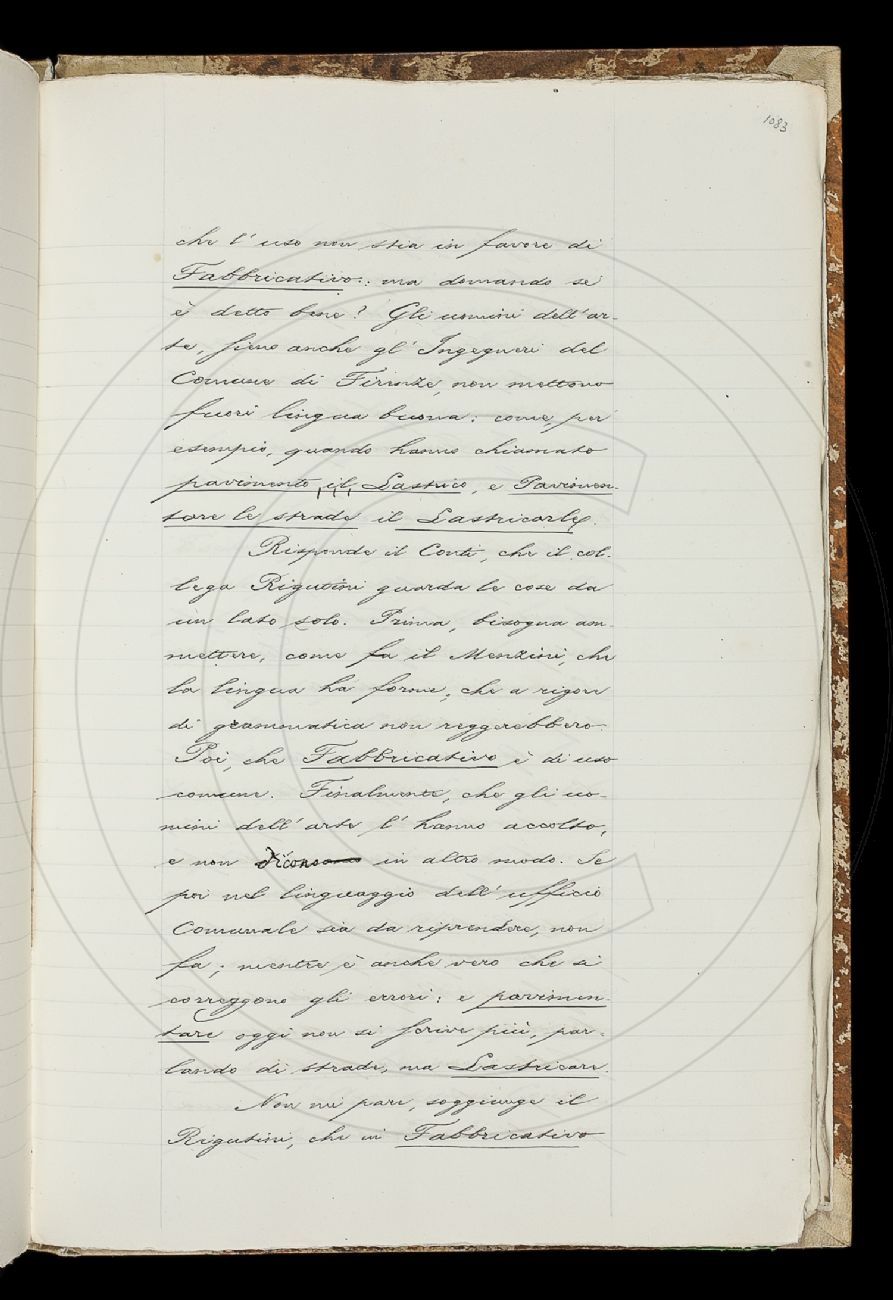 1083
che l' uso non stia in favore di
Fabbricativo: ma domando se
è detto bene? Gli uomini dell' ar-
te, sieno anche gl' Ingegneri del
Comune di Firenze, non mettono
fuori lingua buona: come, per
esempio, quando hanno chiamato
pavimento, il, Lastrico, e Pavimen-
tare le strade il Lastricarle.
Risponde il Conti, che il col-
lega Rigutini guarda le cose da
un lato solo. Prima, bisogna am-
mettere, come fa il Menzini, che
la lingua ha forme, che a rigore
di grammatica non reggerebbero.
Poi, che Fabbricativo è di uso
comune. Finalmente, che gli uo-
mini dell' arte l' hanno accolto,
e non dicono in altro modo. Se
poi nel linguaggio dell' ufficio
Comunale sia da riprendere, non
fa; mentre è anche vero che si
correggono gli errori: e pavimen-
tare oggi non si scrive più, par-
lando di strade, ma Lastricare.
Non mi pare, soggiunge il
Rigutini, che in Fabbricativo